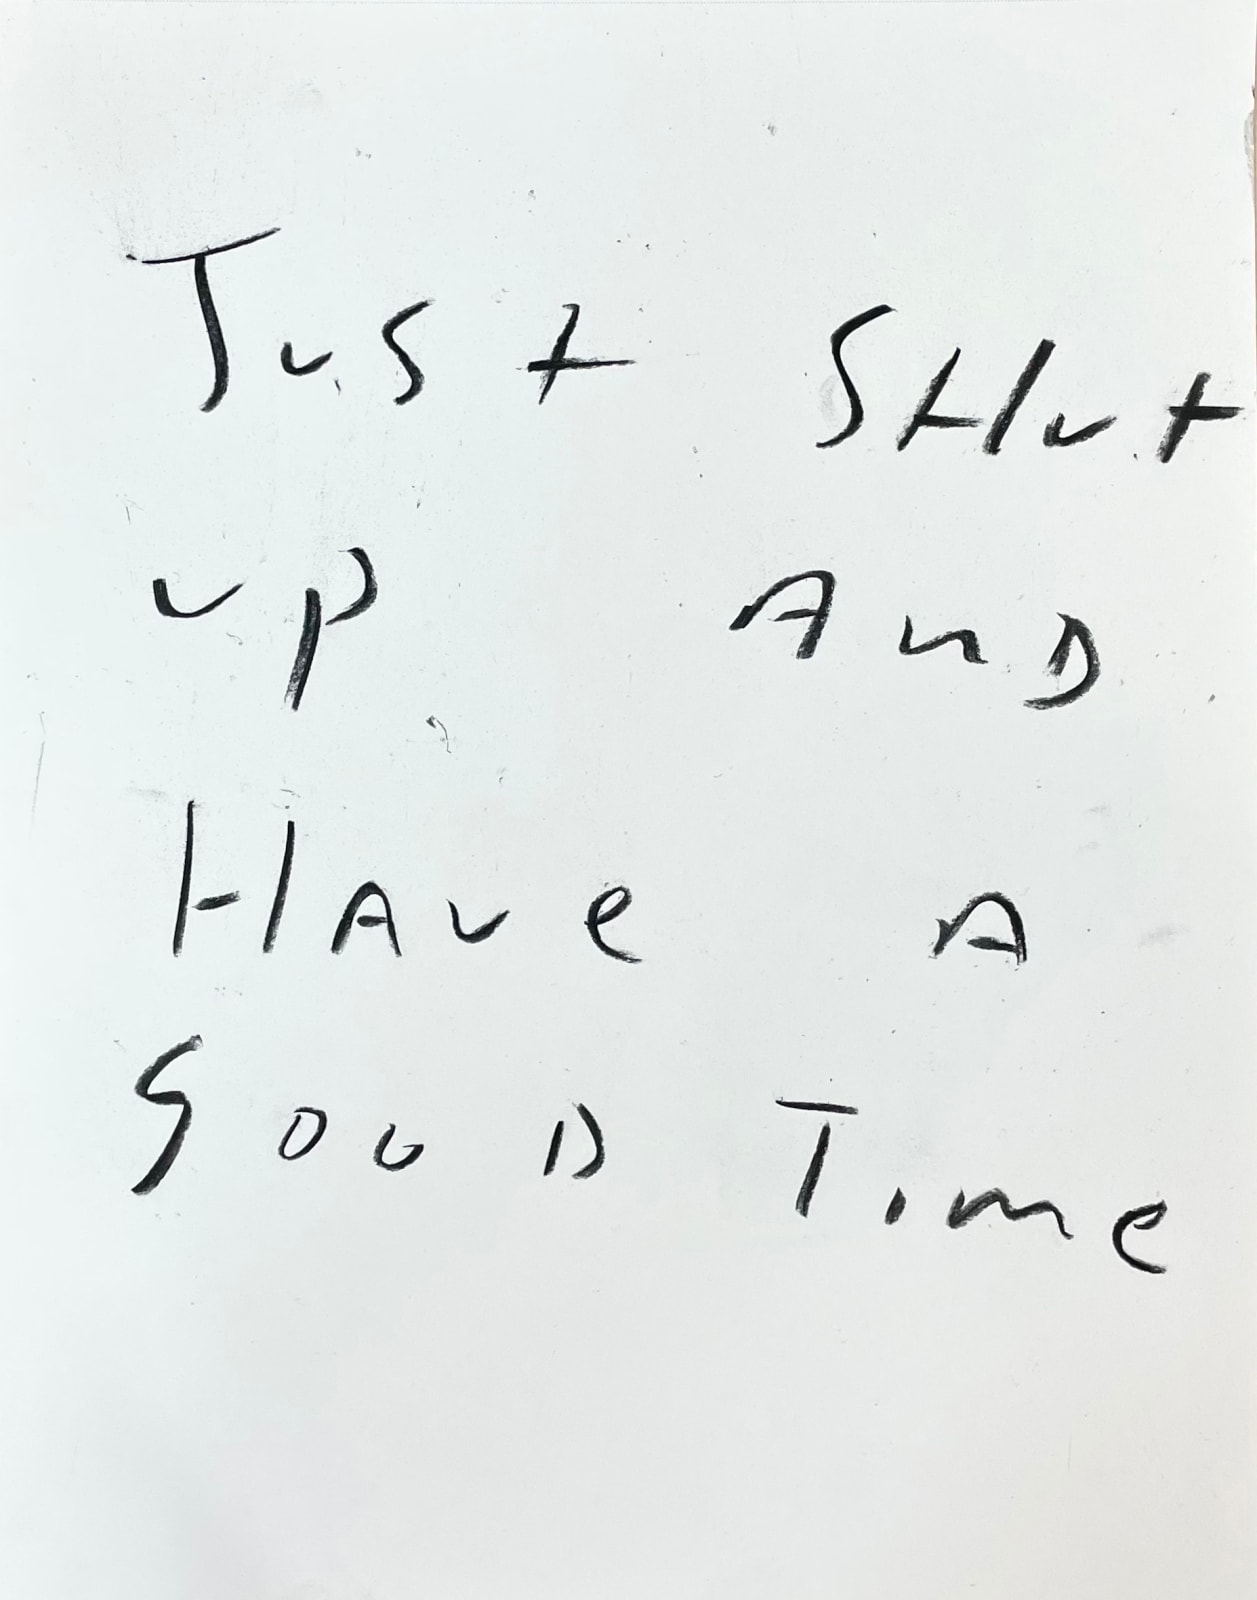 Just SHut
up AnD
HAve A
GooD Time